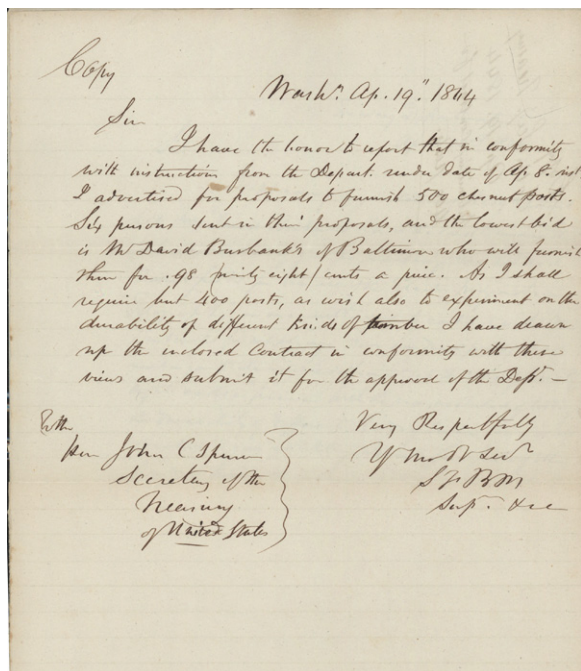 Copy
Washn. Ap. 19". 1844
Sir
I have the honor to report that in conformity
with instructions from the Depart. under date of Ap 8. inst
I advertised for proposals to furnish 500 chesnut posts.
Six persons sent in their proposals, and the lowest bid
is Mr David Burbank's of Baltimore who will furnish
them for .98 (ninety eight) cents a piece. As I shall
require but 400 posts, as wish also to experiment on the
durability of different kinds of timber I have drawn
up the inclosed Contract in conformity with these
views and submit it for the approval of the Dept. —
Very Respectfully
Yr Mo Ob Servt
Supt. &c
To the
Hon John C Spencer
Secretary of the
Treasury
of United States